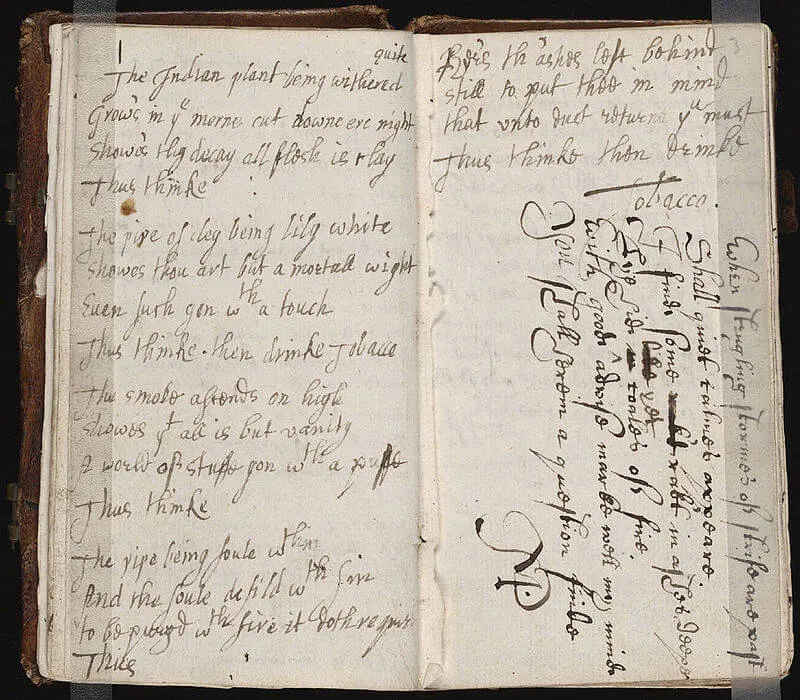 quite
The Indian plant being withered
Grow's in yᵉ morne cut downe ere night
Showes thy decay all flesh is clay
Thus thinke
The pipe of cley being lily white
Showes thou art but a mortall wight
Even such gon wᵗʰ a touch
Thus thinke . then drinke Tobacco
The smoke assends on high
Showes yᵗ all is but vanity
A world of stuffe gon wᵗʰ a puffe
Thus thinke
The pipe being foule wᵗʰin
And the soule defild wᵗʰ sin
to be purgd wᵗʰ fire it doth requir
Thus
3
Her's th'ashes left behind
still to put thee in mind
that vnto dust returne yᵘ must
Thus thinke then drinke
Tobacco.
When stormes of strife are past
Shall quiet calmes appeare
I find some rakt in ashes deepe
hid coales of fire.
With good advise marke well my minde
You shall herein a question finde